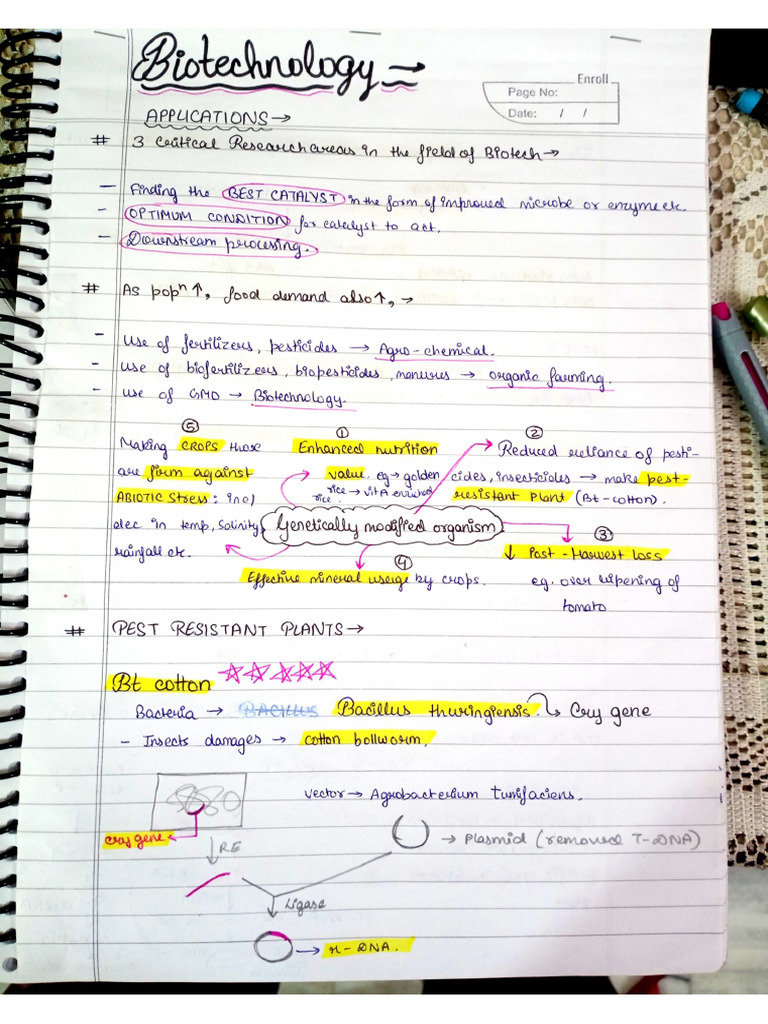 Biotechnology →
Enroll
Page No:
Date: / /
APPLICATIONS →
# 3 Critical Research areas in the field of Biotech →
– Finding the BEST CATALYST in the form of improved microbe or enzyme etc.
– OPTIMUM CONDITION for catalyst to act.
– Downstream processing.
# As popⁿ ↑, food demand also ↑, →
– Use of fertilizers, pesticides → Agro-chemical.
– Use of biofertilizers, biopesticides, manures → organic farming.
– Use of GMO → Biotechnology.
⑤
Making CROPS those
are firm against
ABIOTIC Stress: inc/
dec in temp, Salinity,
rainfall etc.
①
Enhanced nutrition
value. eg → golden
rice → vit A enriched
rice.
②
Reduced reliance of pesti-
cides, insecticides → make pest-
resistant PLANT (Bt-cotton).
Genetically modified organism
③
↓ Post-Harvest loss
eg. over ripening of
tomato
④
Effective mineral useige by crops.
# PEST RESISTANT PLANTS →
Bt cotton ☆☆☆☆☆
Bacteria → BACILLUS Bacillus thuringiensis. ↳ Cry gene
– Insects damages → cotton bollworm.
vector → Agrobacterium tumifaciens.
cray gene
RE
→ Plasmid (removed T-DNA)
Ligase
→ r-DNA.